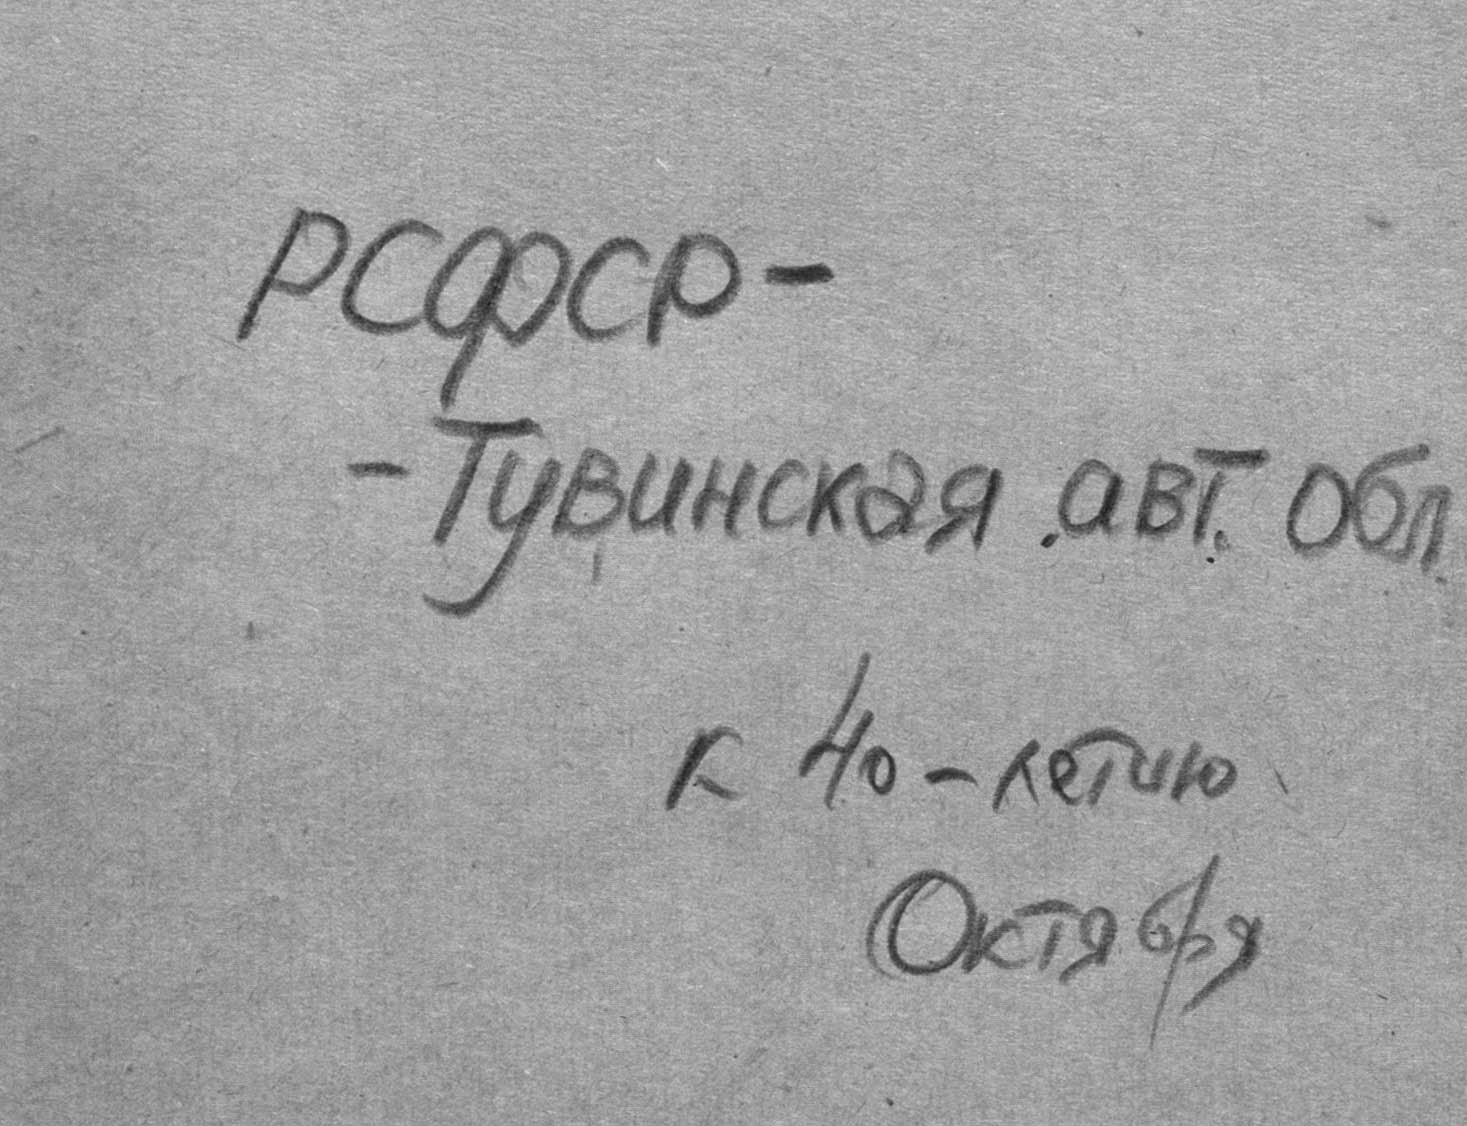 РСФСР-
-Тувинская авт. обл.
к 40-летию
Октября